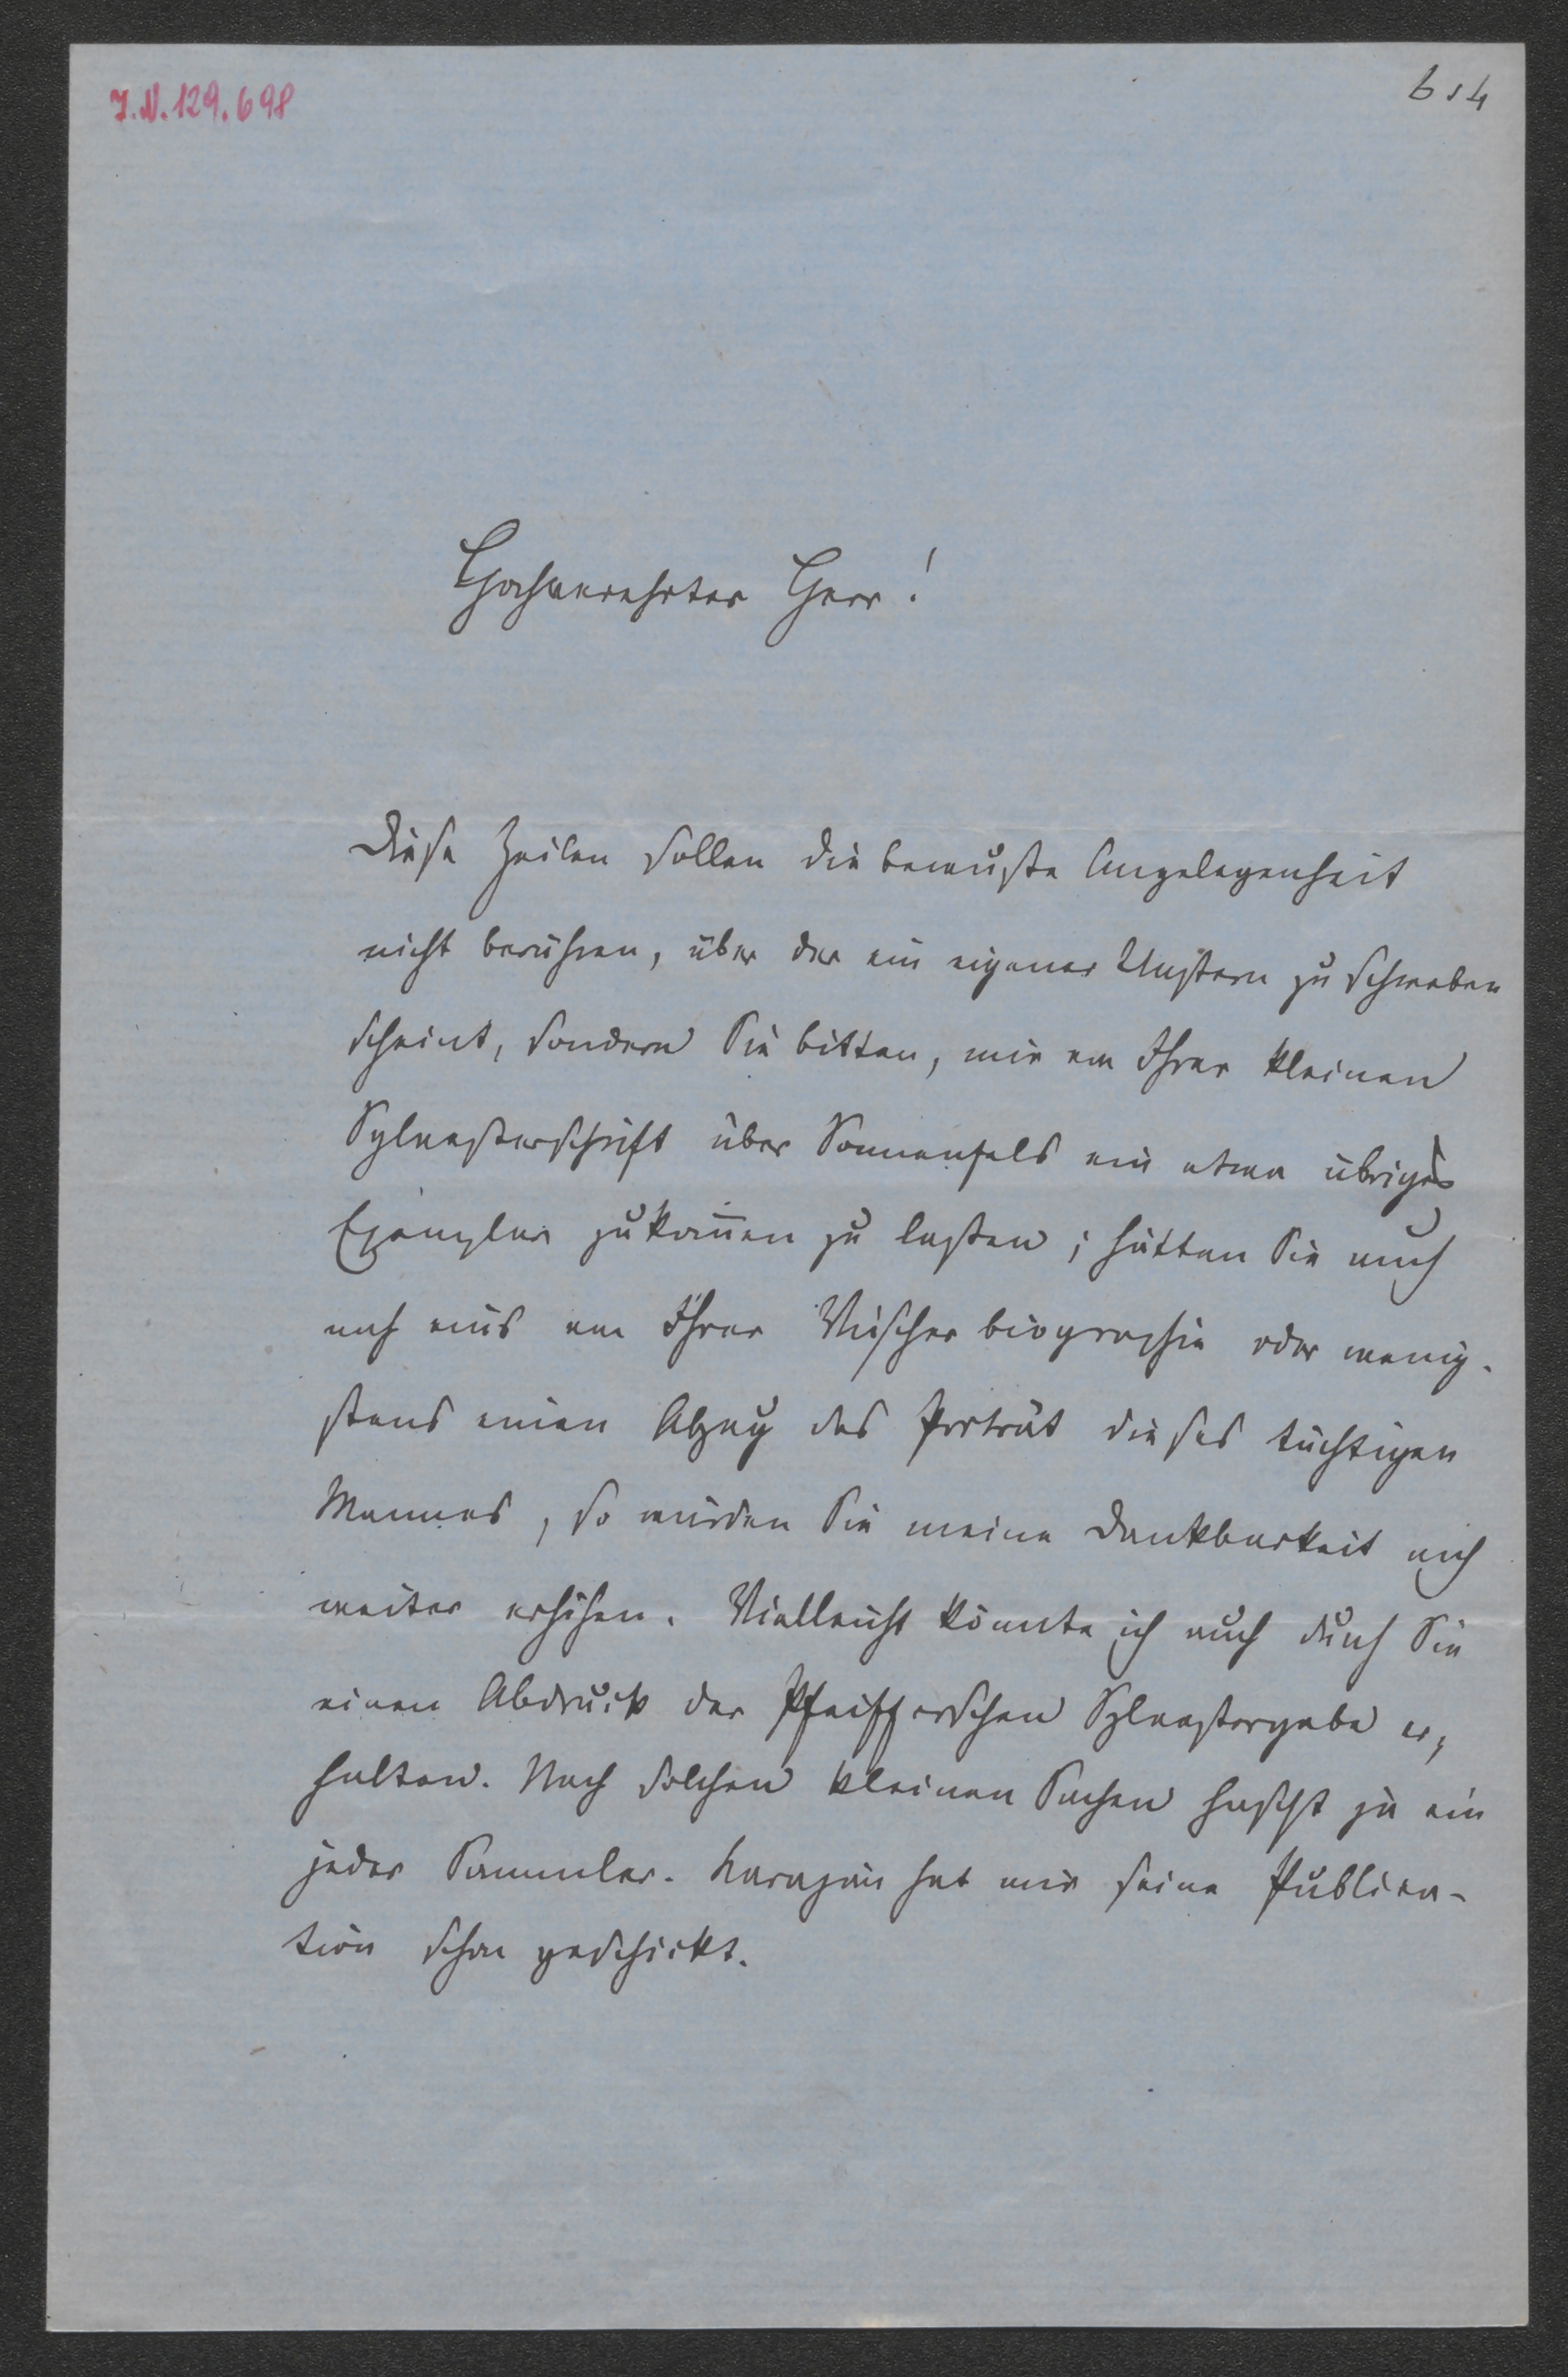 I.N. 129.698
614
Hochverehrter Herr!
Diese Zeilen sollen die bewußte Angelegenheit
nicht berühren, über der ein eigener Unstern zu schweben
scheint, sondern Sie bitten, mir von Ihrer kleinen
Sylvesterschrift über Sonnenfels ein etwa übriges
Exemplar zukom̄en zu lassen; hätten Sie auch
noch eins von Ihrer Vischer biographie oder wenig-
stens einen Abzug des Porträt dieses tüchtigen
Mannes, so würden Sie meine Dankbarkeit noch
weiter erhöhen. Vielleicht könnte ich auch durch Sie
einen Abdruck der Pfeifferschen Sylvestergabe er-
halten. Nach solchen kleinen Sachen hascht ja ein
jeder Sammler. Karajan hat mir seine Publica-
tion schon geschickt.